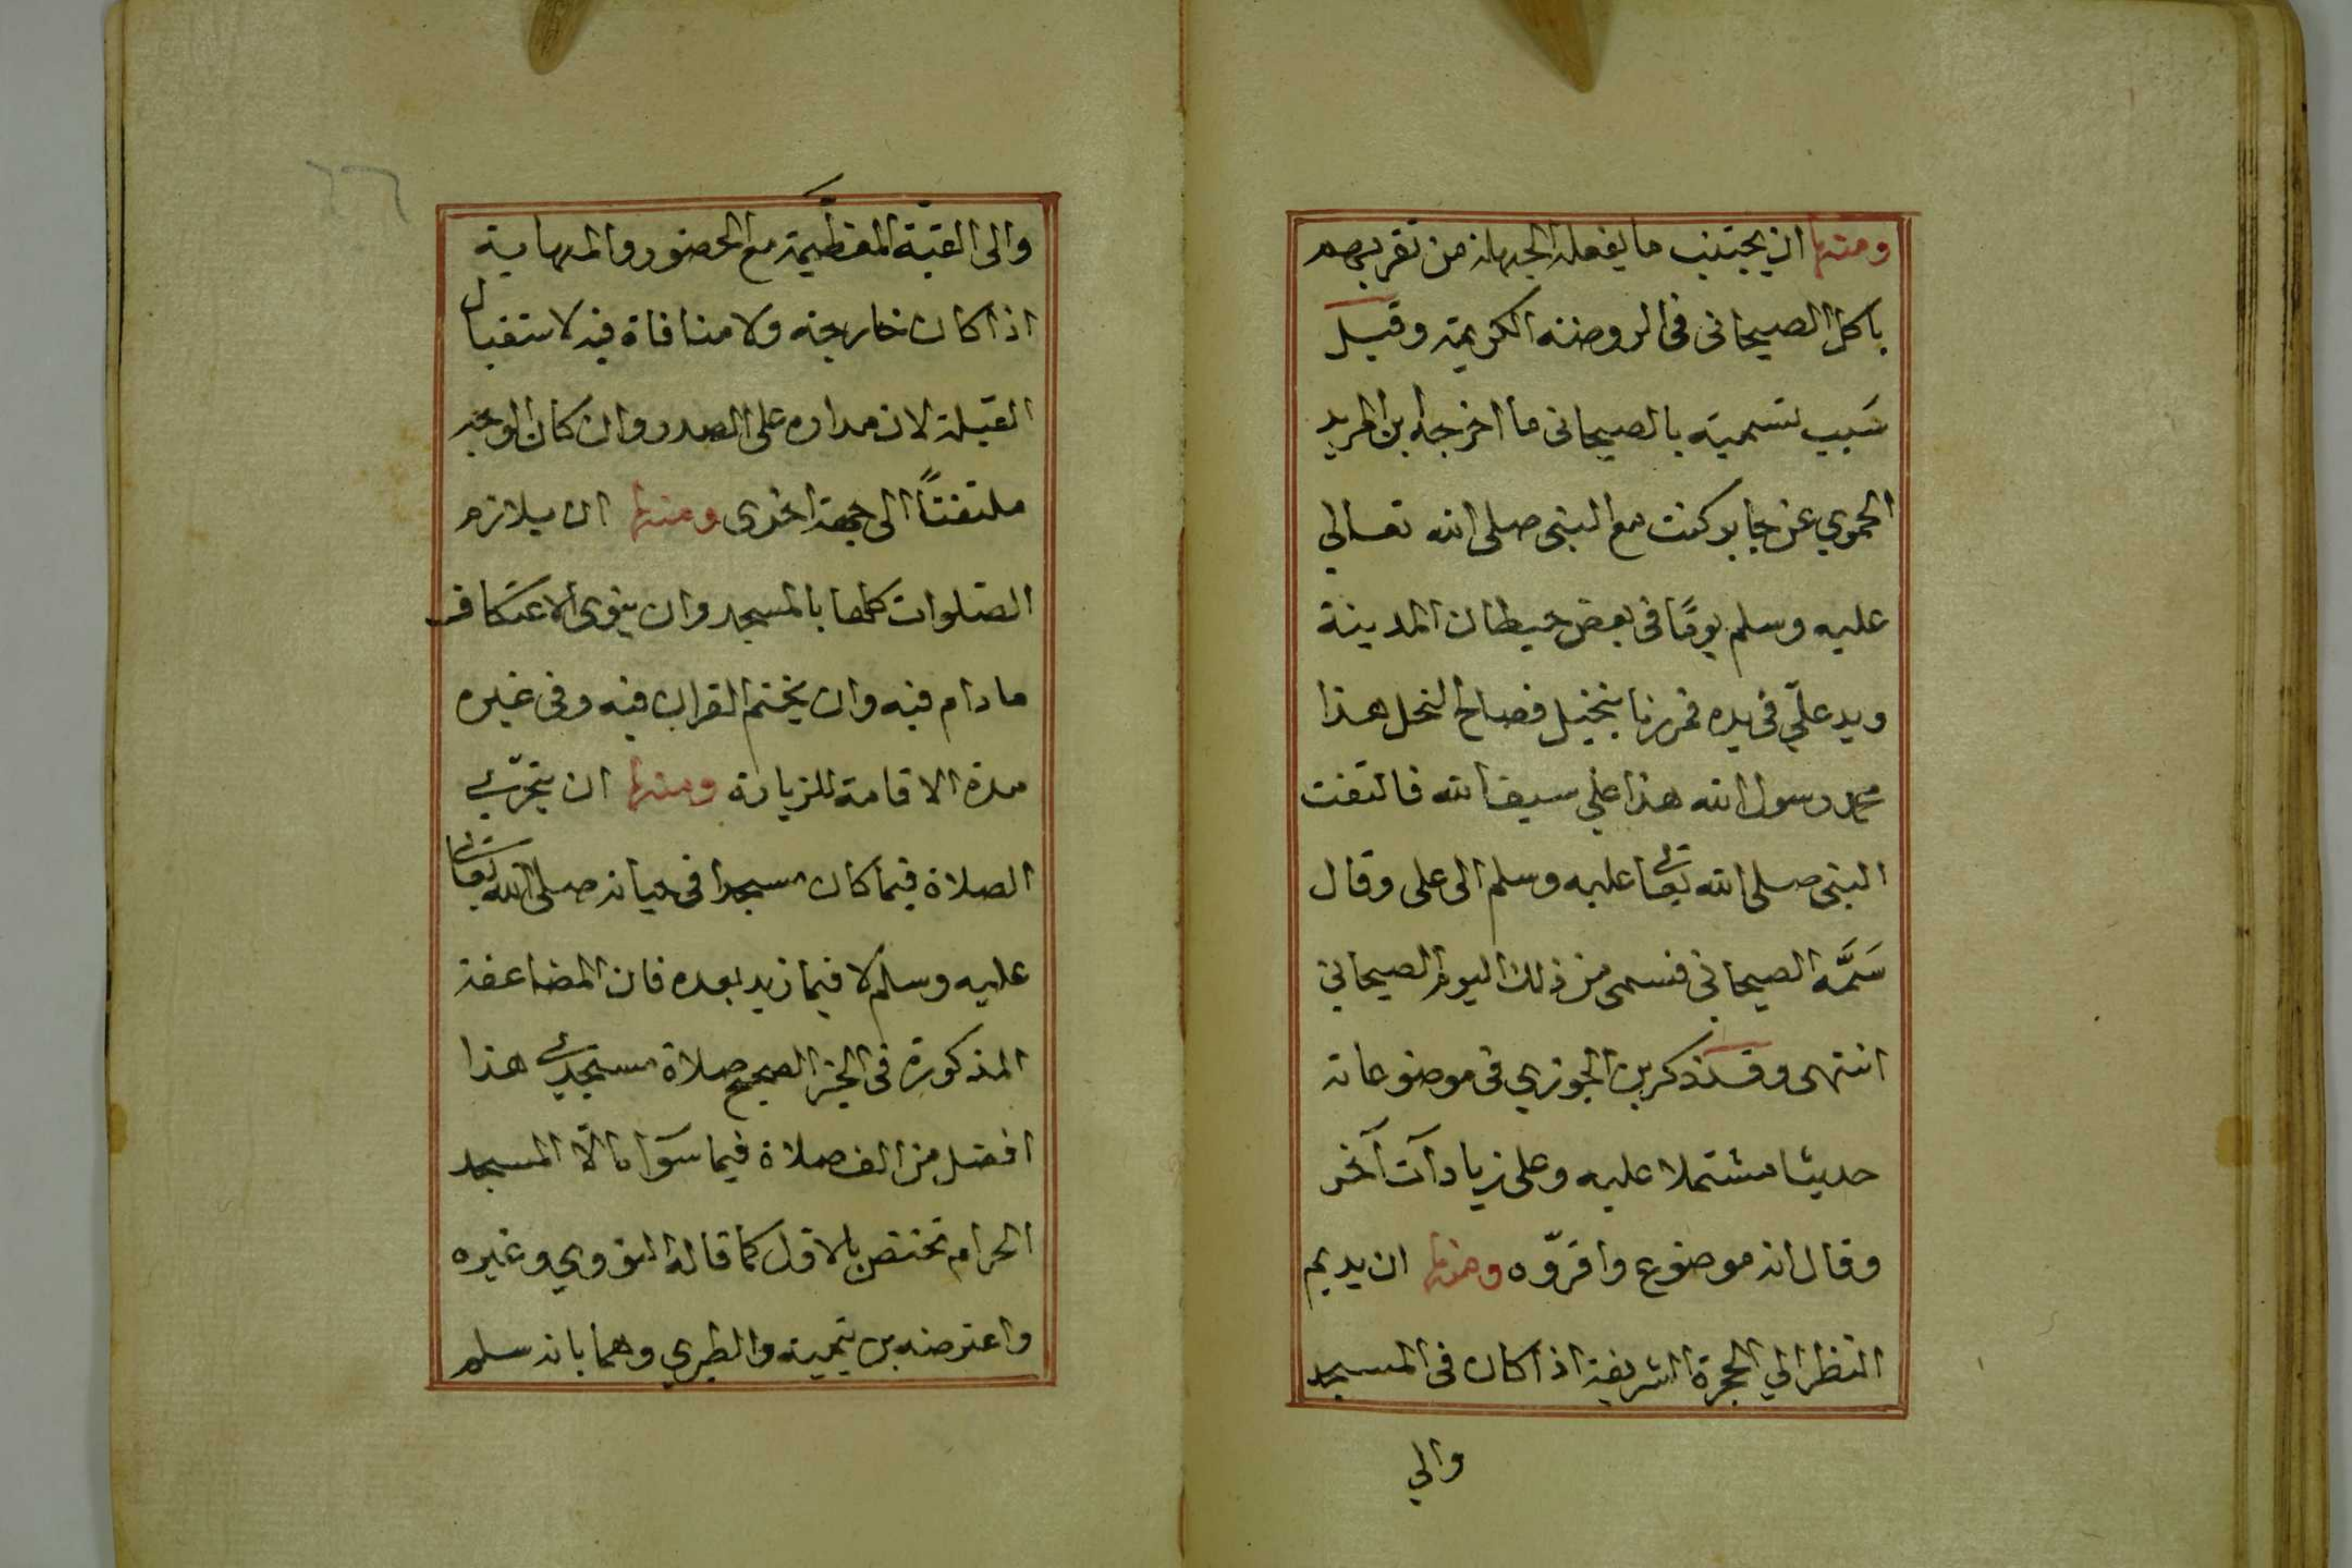 ومنها ان يجتنب ما يفعله الجهلة من تقربهم
باكل الصيحانى فى الروضة الكريمة وقيل
سَبب تسميته بالصيحانى ما اخرجه ابن المريد
الحموي عن جابر كنت مع النبى صلى الله تعالى
عليه وسلم يومًا فى بعض حيطان المدينة
ويد علّي فى يده فمررنا بنخيل فصاح النخل هذا
محمد رسول الله هذا علي سيف الله فالتفت
النبى صلى الله تعالى عليه وسلم الى على وقال
سَمَّه الصيحانى فسمى من ذلك اليوم الصيحاني
انتهى وقد ذكر بن الجوزي فى موضوعاته
حديثا مشتملا عليه وعلى زيادات آخر
وقال انه موضوع واقرّوه ومنها ان يديم
النظر الي الحجرة الشريفة اذا كان فى المسجد
والي
٦٦
والى القبّة المعظّيمة مع الحضور والمهابة
اذا كان خارجه ولا منافاة فيه لاستقبال
القبلة لان مداره على الصدر وان كان الوجه
ملتفتًا الى جهة اخرى ومنها ان يلازم
الصّلوات كلها بالمسجد وان ينوى الاعتكاف
ما دام فيه وان يختم القران فيه وفى غيره
مدة الاقامة للزيارة ومنها ان يتحرّي
الصلاة فيما كان مسجدا فى حياته صلى الله تعالى
عليه وسلم لا فيما زيد بعده فان المضاعفة
المذكورة فى الخبر الصحيح صلاة مسجدي هذا
افضل من الف صلاة فيما سوَاه الّا المسجد
الحرام تختص بالاول كما قاله النووي وغيره
واعترضه بن تيمية والطبري وهما بانه سلم